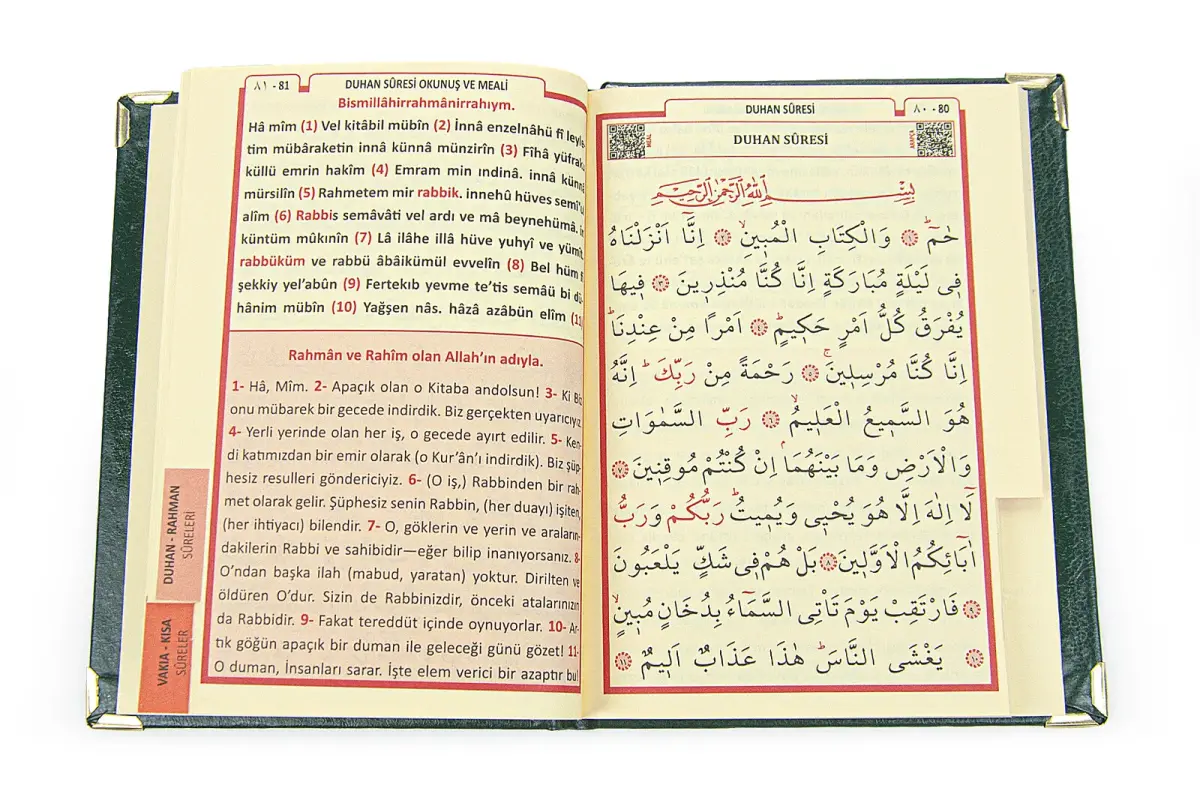 DUHAN SÛRESİ
٨٠ - 80
MEAL
DUHAN SÛRESİ
ARAPÇA
بِسْمِ اللّٰهِ الرَّحْمٰنِ الرَّحِيمِ
حٰمٓ ۚ ﴿١﴾ وَالْكِتَابِ الْمُبٖينِ ۙ ﴿٢﴾ اِنَّٓا اَنْزَلْنَاهُ
فٖى لَيْلَةٍ مُبَارَكَةٍ اِنَّا كُنَّا مُنْذِرٖينَ ﴿٣﴾ فٖيهَا
يُفْرَقُ كُلُّ اَمْرٍ حَكٖيمٍ ۙ ﴿٤﴾ اَمْرًا مِنْ عِنْدِنَا ؕ
اِنَّا كُنَّا مُرْسِلٖينَ ۚ ﴿٥﴾ رَحْمَةً مِنْ رَبِّكَ ؕ اِنَّهُ
هُوَ السَّمٖيعُ الْعَلٖيمُ ۙ ﴿٦﴾ رَبِّ السَّمٰوَاتِ
وَالْاَرْضِ وَمَا بَيْنَهُمَا ۢ اِنْ كُنْتُمْ مُوقِنٖينَ ﴿٧﴾
لَٓا اِلٰهَ اِلَّا هُوَ يُحْيٖى وَيُمٖيتُ ؕ رَبُّكُمْ وَرَبُّ
اٰبَٓائِكُمُ الْاَوَّلٖينَ ﴿٨﴾ بَلْ هُمْ فٖى شَكٍّ يَلْعَبُونَ
﴿٩﴾ فَارْتَقِبْ يَوْمَ تَاْتِى السَّمَٓاءُ بِدُخَانٍ مُبٖينٍ ۙ
﴿١٠﴾ يَغْشَى النَّاسَ ؕ هٰذَا عَذَابٌ اَلٖيمٌ ﴿١١﴾
٨١ - 81
DUHAN SÛRESİ OKUNUŞ VE MEALİ
Bismillâhirrahmânirrahıym.
Hâ mîm (1) Vel kitâbil mübîn (2) İnnâ enzelnâhü fî leyle-
tim mübâraketin innâ künnâ münzirîn (3) Fîhâ yüfraku
küllü emrin hakîm (4) Emram min ındinâ. innâ künnâ
mürsilîn (5) Rahmetem mir rabbik. innehû hüves semî'ul
alîm (6) Rabbis semâvâti vel ardı ve mâ beynehümâ. in
küntüm mûkınîn (7) Lâ ilâhe illâ hüve yuhyî ve yümît.
rabbüküm ve rabbü âbâikümül evvelîn (8) Bel hüm fî
şekkiy yel'abûn (9) Fertekıb yevme te'tis semâü bi dü-
hânim mübîn (10) Yağşen nâs. hâzâ azâbün elîm (11
Rahmân ve Rahîm olan Allah'ın adıyla.
1- Hâ, Mîm. 2- Apaçık olan o Kitaba andolsun! 3- Ki Biz
onu mübarek bir gecede indirdik. Biz gerçekten uyarıcıyız.
4- Yerli yerinde olan her iş, o gecede ayırt edilir. 5- Ken-
di katımızdan bir emir olarak (o Kur'ân'ı indirdik). Biz şüp-
hesiz resulleri göndericiyiz. 6- (O iş,) Rabbinden bir rah-
met olarak gelir. Şüphesiz senin Rabbin, (her duayı) işiten,
(her ihtiyacı) bilendir. 7- O, göklerin ve yerin ve araların-
dakilerin Rabbi ve sahibidir—eğer bilip inanıyorsanız. 8-
O'ndan başka ilah (mabud, yaratan) yoktur. Dirilten ve
öldüren O'dur. Sizin de Rabbinizdir, önceki atalarınızın
da Rabbidir. 9- Fakat tereddüt içinde oynuyorlar. 10- Ar-
tık göğün apaçık bir duman ile geleceği günü gözet! 11-
O duman, İnsanları sarar. İşte elem verici bir azaptır bu!
DUHAN - RAHMAN
SÛRELERİ
VAKIA - KISA
SÛRELER